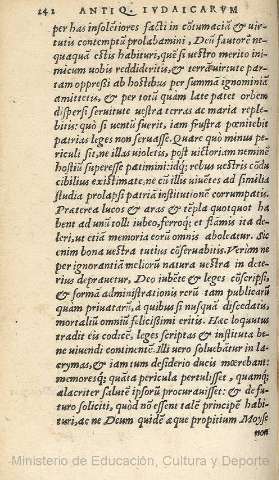 242 ANTIQ. IVDAICARVM
per has insolẽtiores facti in cõtumaciã & vir-
tutis contemptũ prolabamini, Deũ fautorẽ ne-
quaquã estis habituri, quẽ si vestro merito ini-
micum vobis reddideritis, & terrã virtute par-
tam oppressi ab hostibus per summã ignominiã
amittetis, & per totũ quam late patet orbem
dispersi seruitute vestra terras ac maria reple-
bitis: quò si uentũ fuerit, iam frustra pœnitebit
patrias leges non seruasse. Quare quò minus pe-
riculi sit, ne illas violetis, post victoriam neminẽ
hostiũ superesse patimini: idq; rebus vestris cõdu
cibilius existimate, ne cũ illis uiuẽtes ad similia
studia prolapsi patriã institutionẽ corrumpatis.
Praterea lucos & aras & tẽpla quotquot ha
bent ad unũ tolli iubeo, ferroq; et flãmis ita de-
leri, ut etiã memoria eorũ omnis aboleatur. Sic
enim bona vestra tutius cõseruabitis. Verùm ne
per ignorantiã meliorũ natura vestra in dete-
rius deprauetur, Deo iubẽte & leges cõscripsi,
& formã administrationis rerũ tam publicarũ
quam priuatarũ, à quibus si nusquã discedatis,
mortaliũ omniũ felicissimi eritis. Hæc loquutus
tradit eis codicẽ, leges scriptas & instituta be-
ne uiuendi continentẽ. Illi uero soluebãtur in la-
crymas, & iam tum desiderio ducis mœrebant:
memoresq; quãta pericula pertulisset, quamq;
alacriter salutẽ ipsorũ procurauisset: & de fu-
turo soliciti, quòd nõ essent talẽ principẽ habi-
turi, ac ne Deum quidẽ æque propitium Moyse
non
Ministerio de Educación, Cultura y Deporte